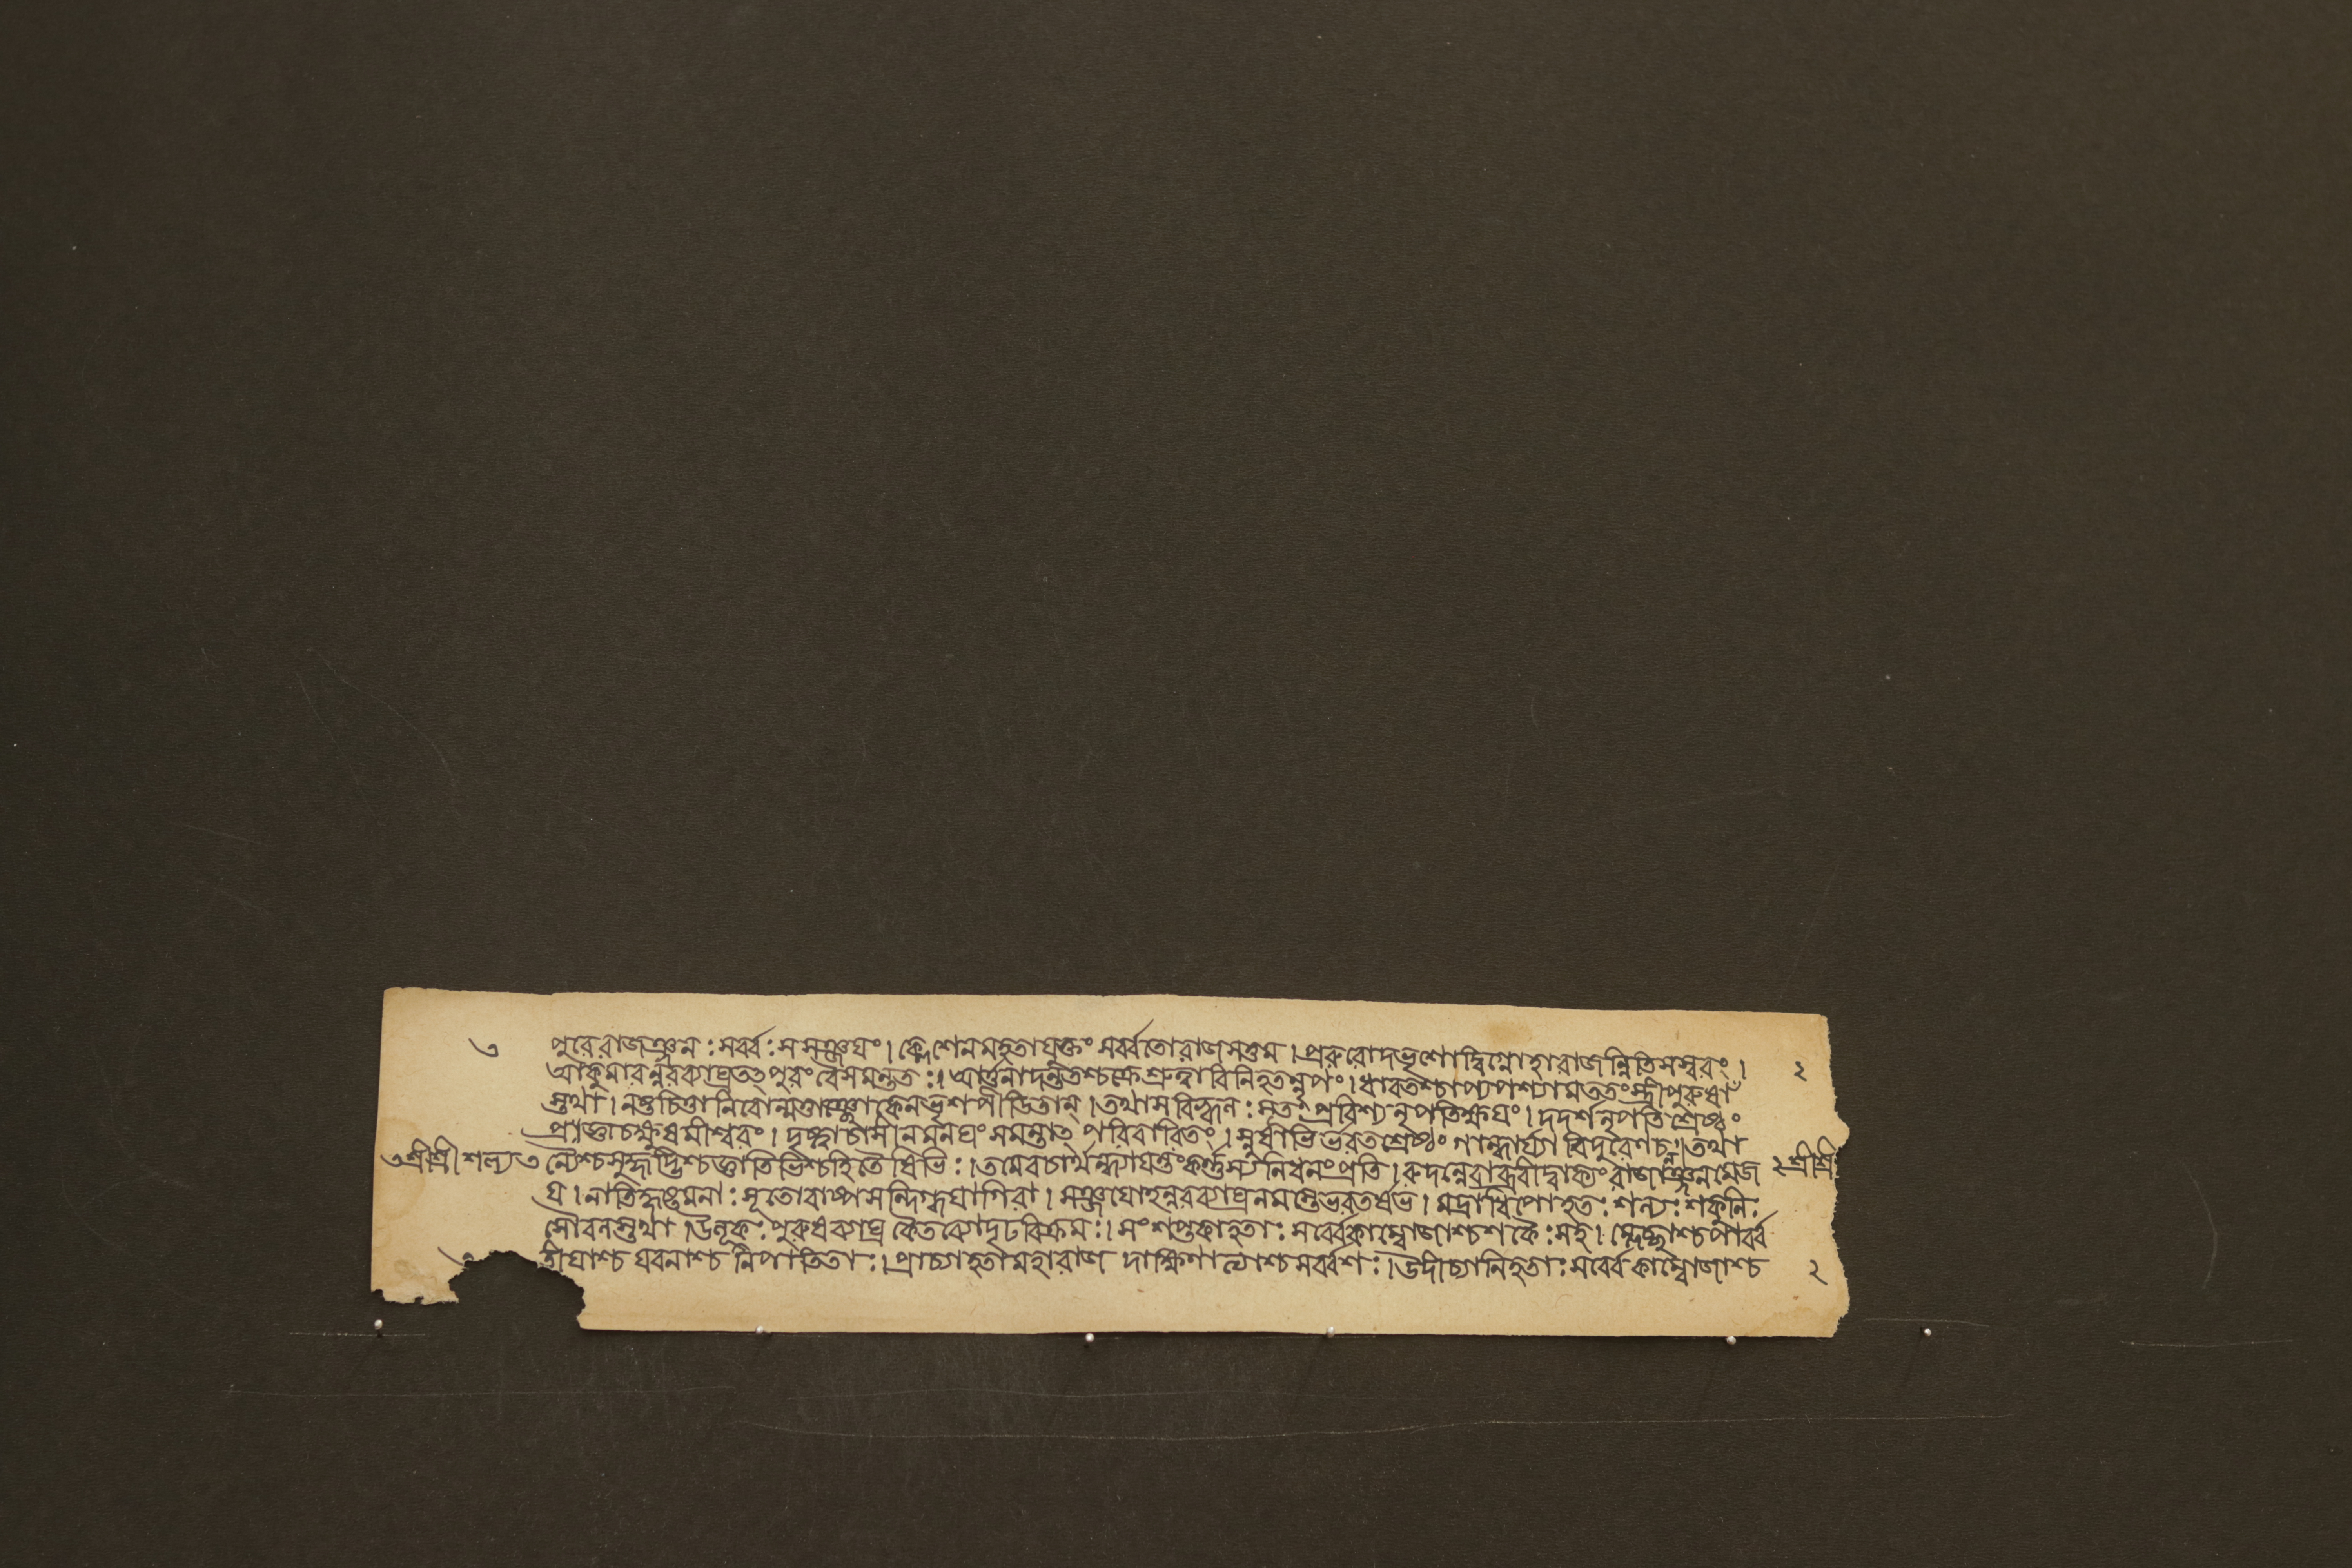 ৩ পুরে রাজঞ্জনঃ সর্ব্বঃ স সঞ্জয়ং । ক্লেশেন মহতা যুক্তং সর্ব্বতো রাজসত্তম । প্ররুরোদ ভৃশোদ্বিগ্নো হা রাজন্নিতি সস্বরং । ২
আকুমারন্নরব্যাঘ্র তত্পুরং বৈ সমন্ততঃ । আর্ত্তনাদন্ততশ্চক্রে শ্রুত্বা বিনিহতন্নৃপং । ধাবতশ্চাপ্যপশ্যাম ততঃ স্ত্রীপুরুষাঁ
স্তথা । নষ্টচিত্তানিবোন্মত্তাঞ্ছোকেন ভৃশপীডিতান্ । তথা স বিহ্বলঃ সূতঃ প্রবিশ্য নৃপতিক্ষয়ং । দদর্শ নৃপতিশ্রেষ্ঠং
প্রজ্ঞাচক্ষুষমীশ্বরং । দৃষ্ট্বা চাসীনমনঘং সমন্তাত্ পরিবারিতং । স্নুষাভির্ভরতশ্রেষ্ঠং গান্ধার্য্যা বিদুরেণ চ । তথা
৩ শ্রীশ্রী শল্য ৩ ন্যৈশ্চ সুহৃদ্ভিশ্চ জ্ঞাতিভিশ্চ হিতৈষিভিঃ । তমেব চার্থন্ধ্যায়ন্তং কর্ণস্য নিধনং প্রতি । রুদন্নেবাব্রবীদ্বাক্যং রাজানঞ্জনমেজ ২ শ্রীশ্রী
য় । নাতিহৃষ্টমনাঃ সূতো বাষ্পসন্দিগ্ধয়া গিরা । সঞ্জয়োহন্নরব্যাঘ্র নমস্তে ভরতর্ষভ । মদ্রাধিপো হতঃ শল্যঃ শকুনিঃ
সৌবলস্তথা । উলূকঃ পুরুষব্যাঘ্র কৈতব্যো দৃঢবিক্রমঃ । সংশপ্তকা হতাঃ সর্ব্বে কাম্বোজাশ্চ শকৈঃ সহ । ম্লেচ্ছাশ্চ পার্ব্ব
তীয়াশ্চ যবনাশ্চ নিপাতিতাঃ । প্রাচ্যা হতা মহারাজ দাক্ষিণাত্যাশ্চ সর্ব্বশঃ । উদীচ্যা নিহতাঃ সর্ব্বে কাম্বোজাশ্চ ২